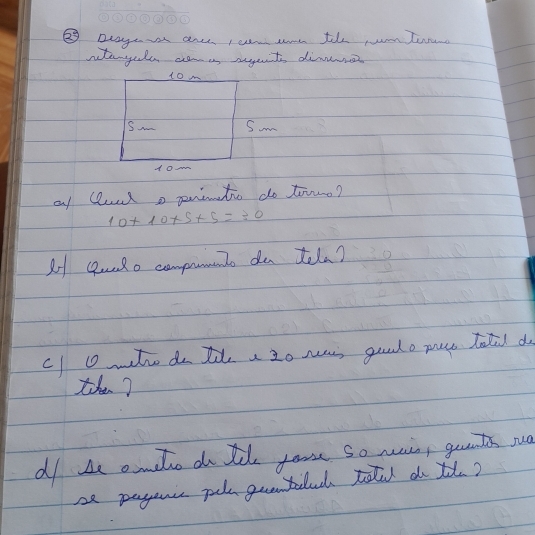 2º) Deseja-se cercar, com uma tela, um terreno
retangular com as seguintes dimensões
10 m
5 m
5 m
10 m
a) Qual o perímetro do terreno?
10 + 10 + 5 + 5 = 30
b) Qual o comprimento da tela?
c) O metro da tela é 20 reais, qual o preço total da
tela?
d) Se o metro da tela fosse 50 reais, quantos rea
se pagaria pela quantidade total de tela?